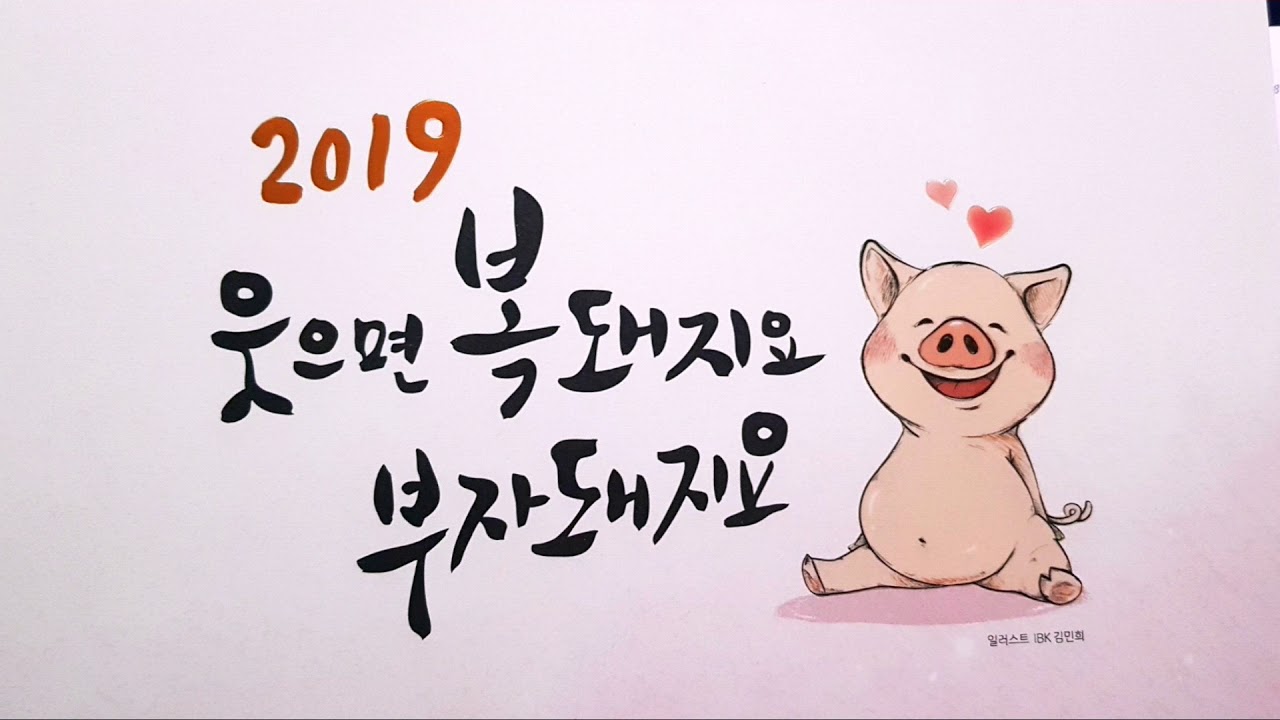 2019
웃으면 복돼지요
부자돼지요
일러스트 IBK 김민희